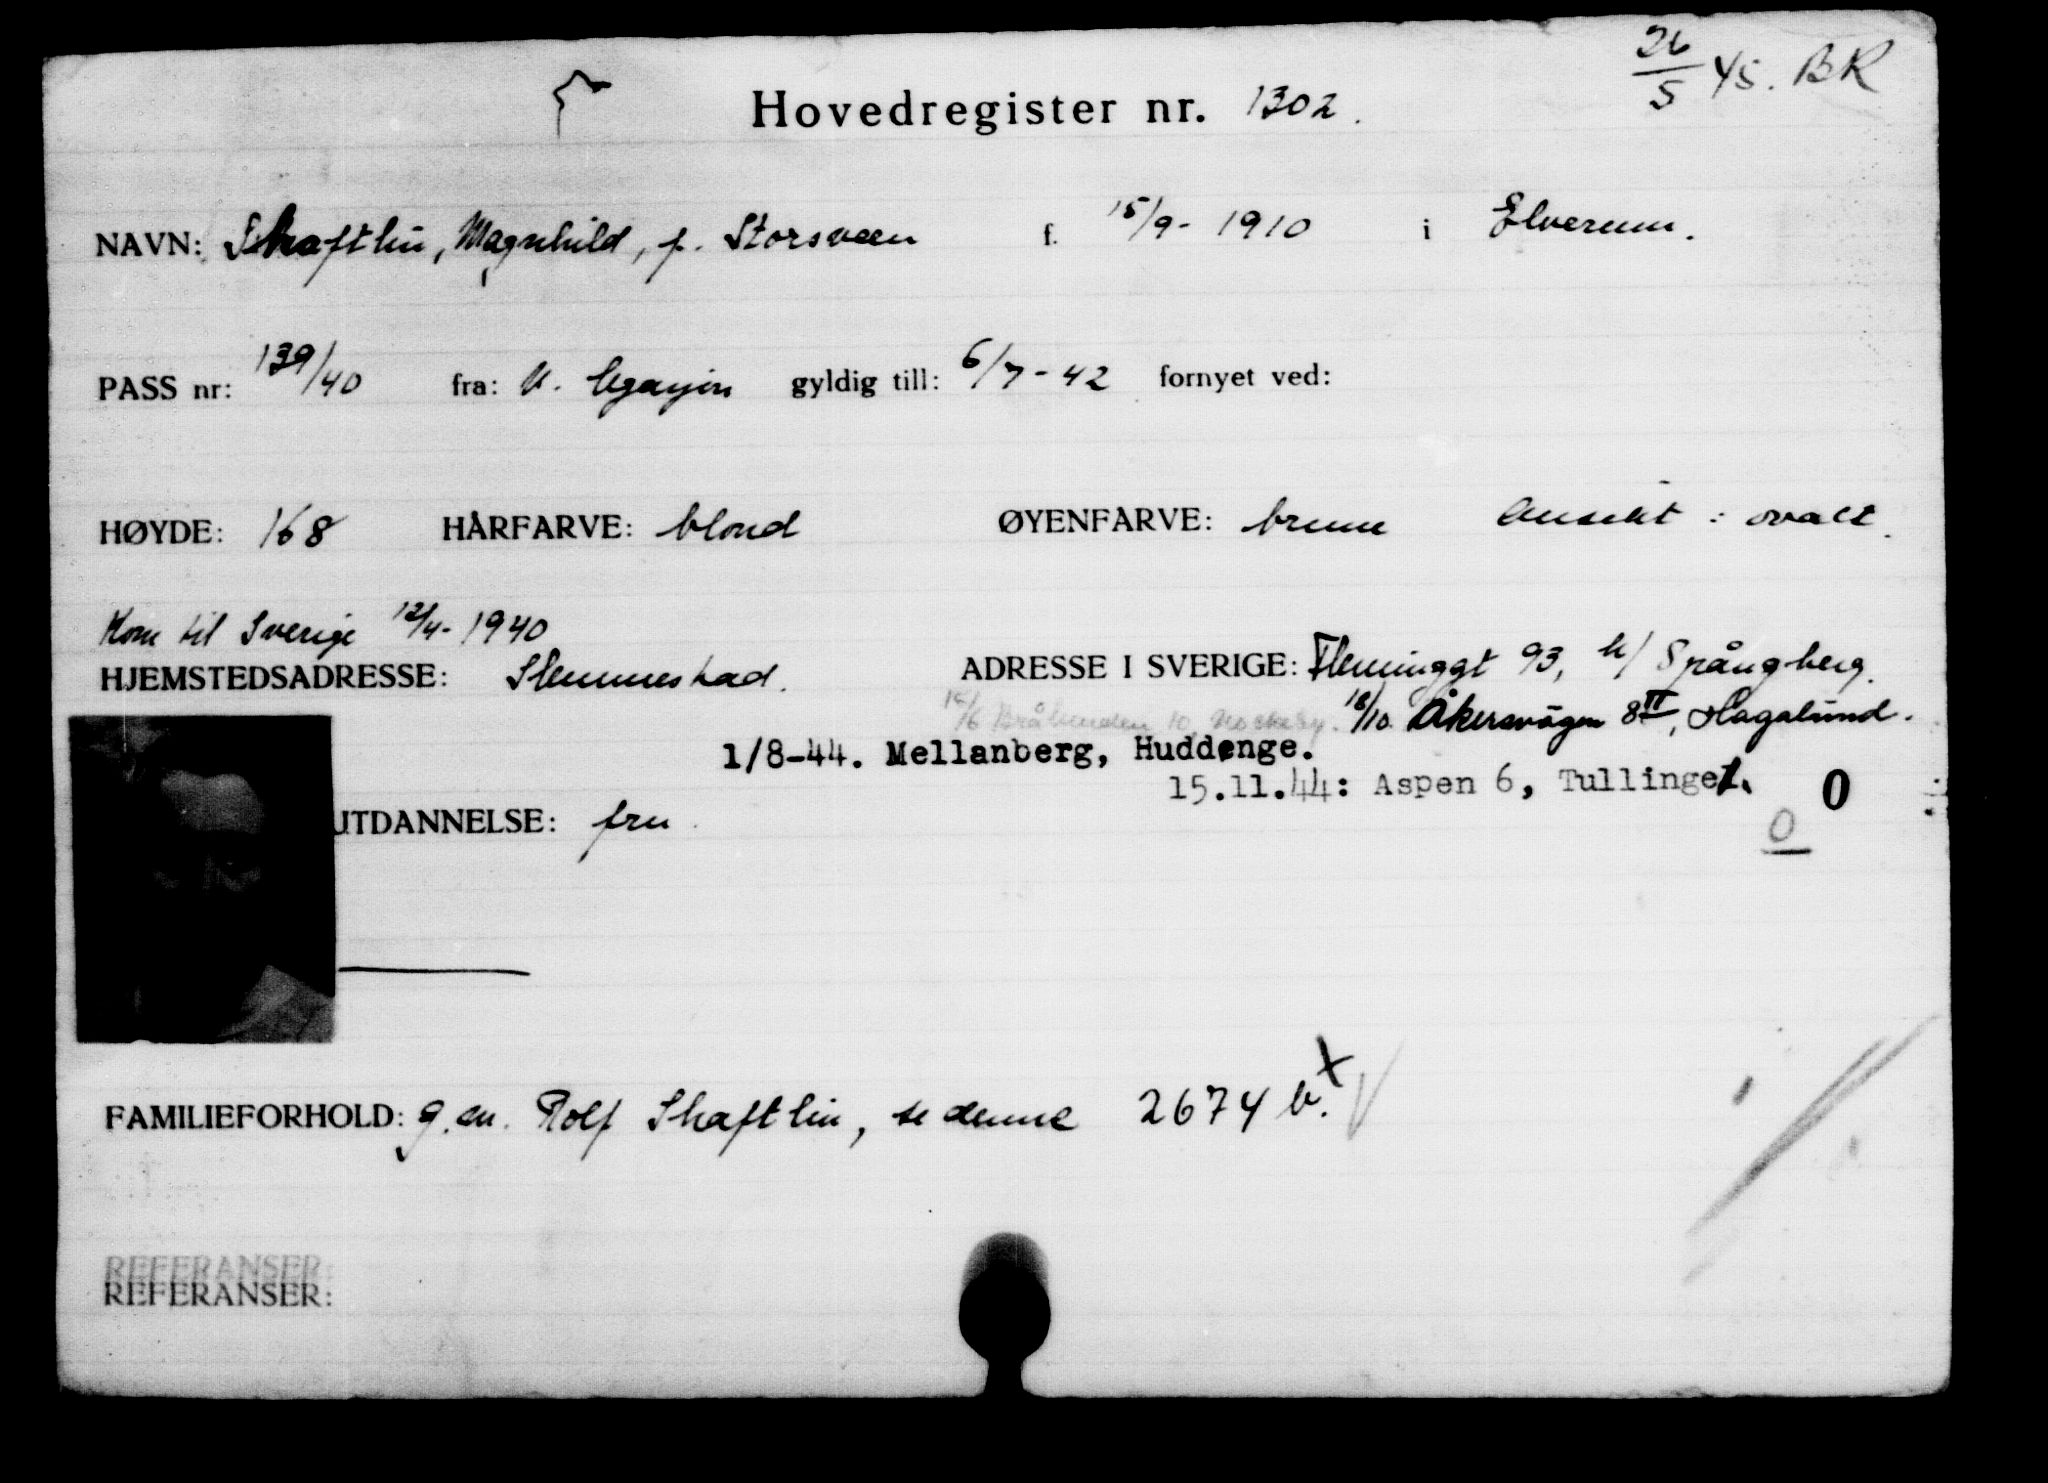 26/5 45. BR
Hovedregister nr. 1302.
NAVN: Shaftlin, Magnhild, f. Storsveen f. 15/9- 1910 i Elverum.
PASS nr: 139/40 fra: gyldig till: 6/7-42 fornyet ved:
HØYDE: 168 HÅRFARVE: blond ØYENFARVE: brune Ansikt: ovalt.
Kom til Sverige 12/4- 1940
HJEMSTEDSADRESSE: Slemmestad. ADRESSE I SVERIGE: Fleminggt 93, h/ Spångberg.
10, 18/10. Åkersvägen 8 II, Hagalund.
1/8-44. Mellanberg, Huddenge.
15.11.44: Aspen 6, Tullinge. 0
UTDANNELSE: fru 0
FAMILIEFORHOLD: g. m. Rolf Shaftlin, se denne 2674 b. x
REFERANSER:
REFERANSER: